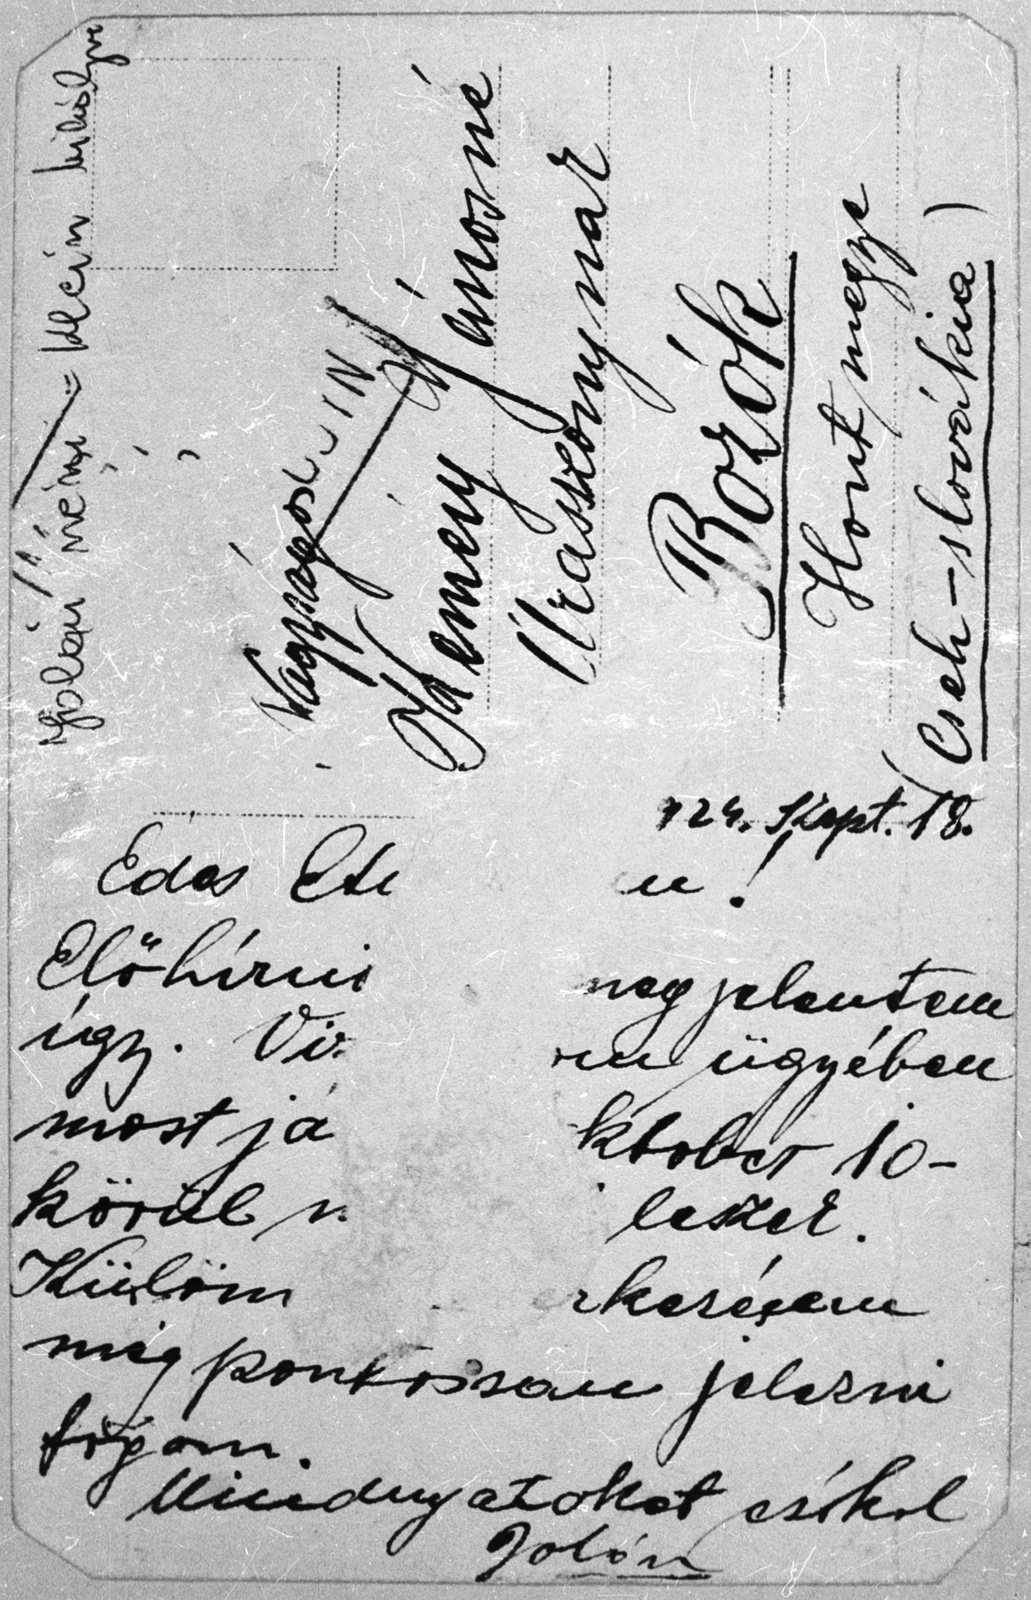 Jolán néni = Klein Mihályné
Nagyságos
Kemény Jánosné
Úrasszonynak
Bozók
Hont megye
(Cseh-slovákia)
924. Szept. 18.
Édes Ete n!
Előhírni megjelentem
úgy. Vi ügyében
most já któber 10-
körül leszek.
Külöm rkezésem
még pontossan jelezni
fogom.
Mindnyátokat csókol
Jolán